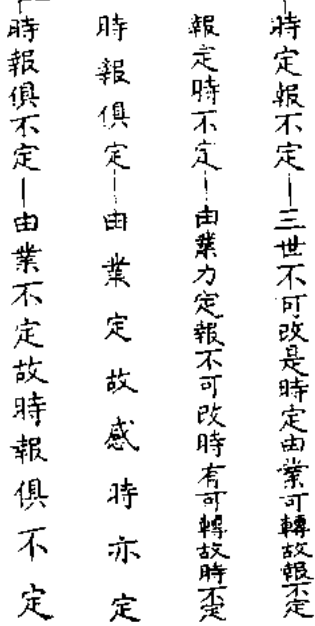 時定報不定—三世不可改是時定由業可轉故報不定
報定時不定—由業力定報不可改時有可轉故時不定
時報俱定—由業定故感時亦定
時報俱不定—由業不定故時報俱不定